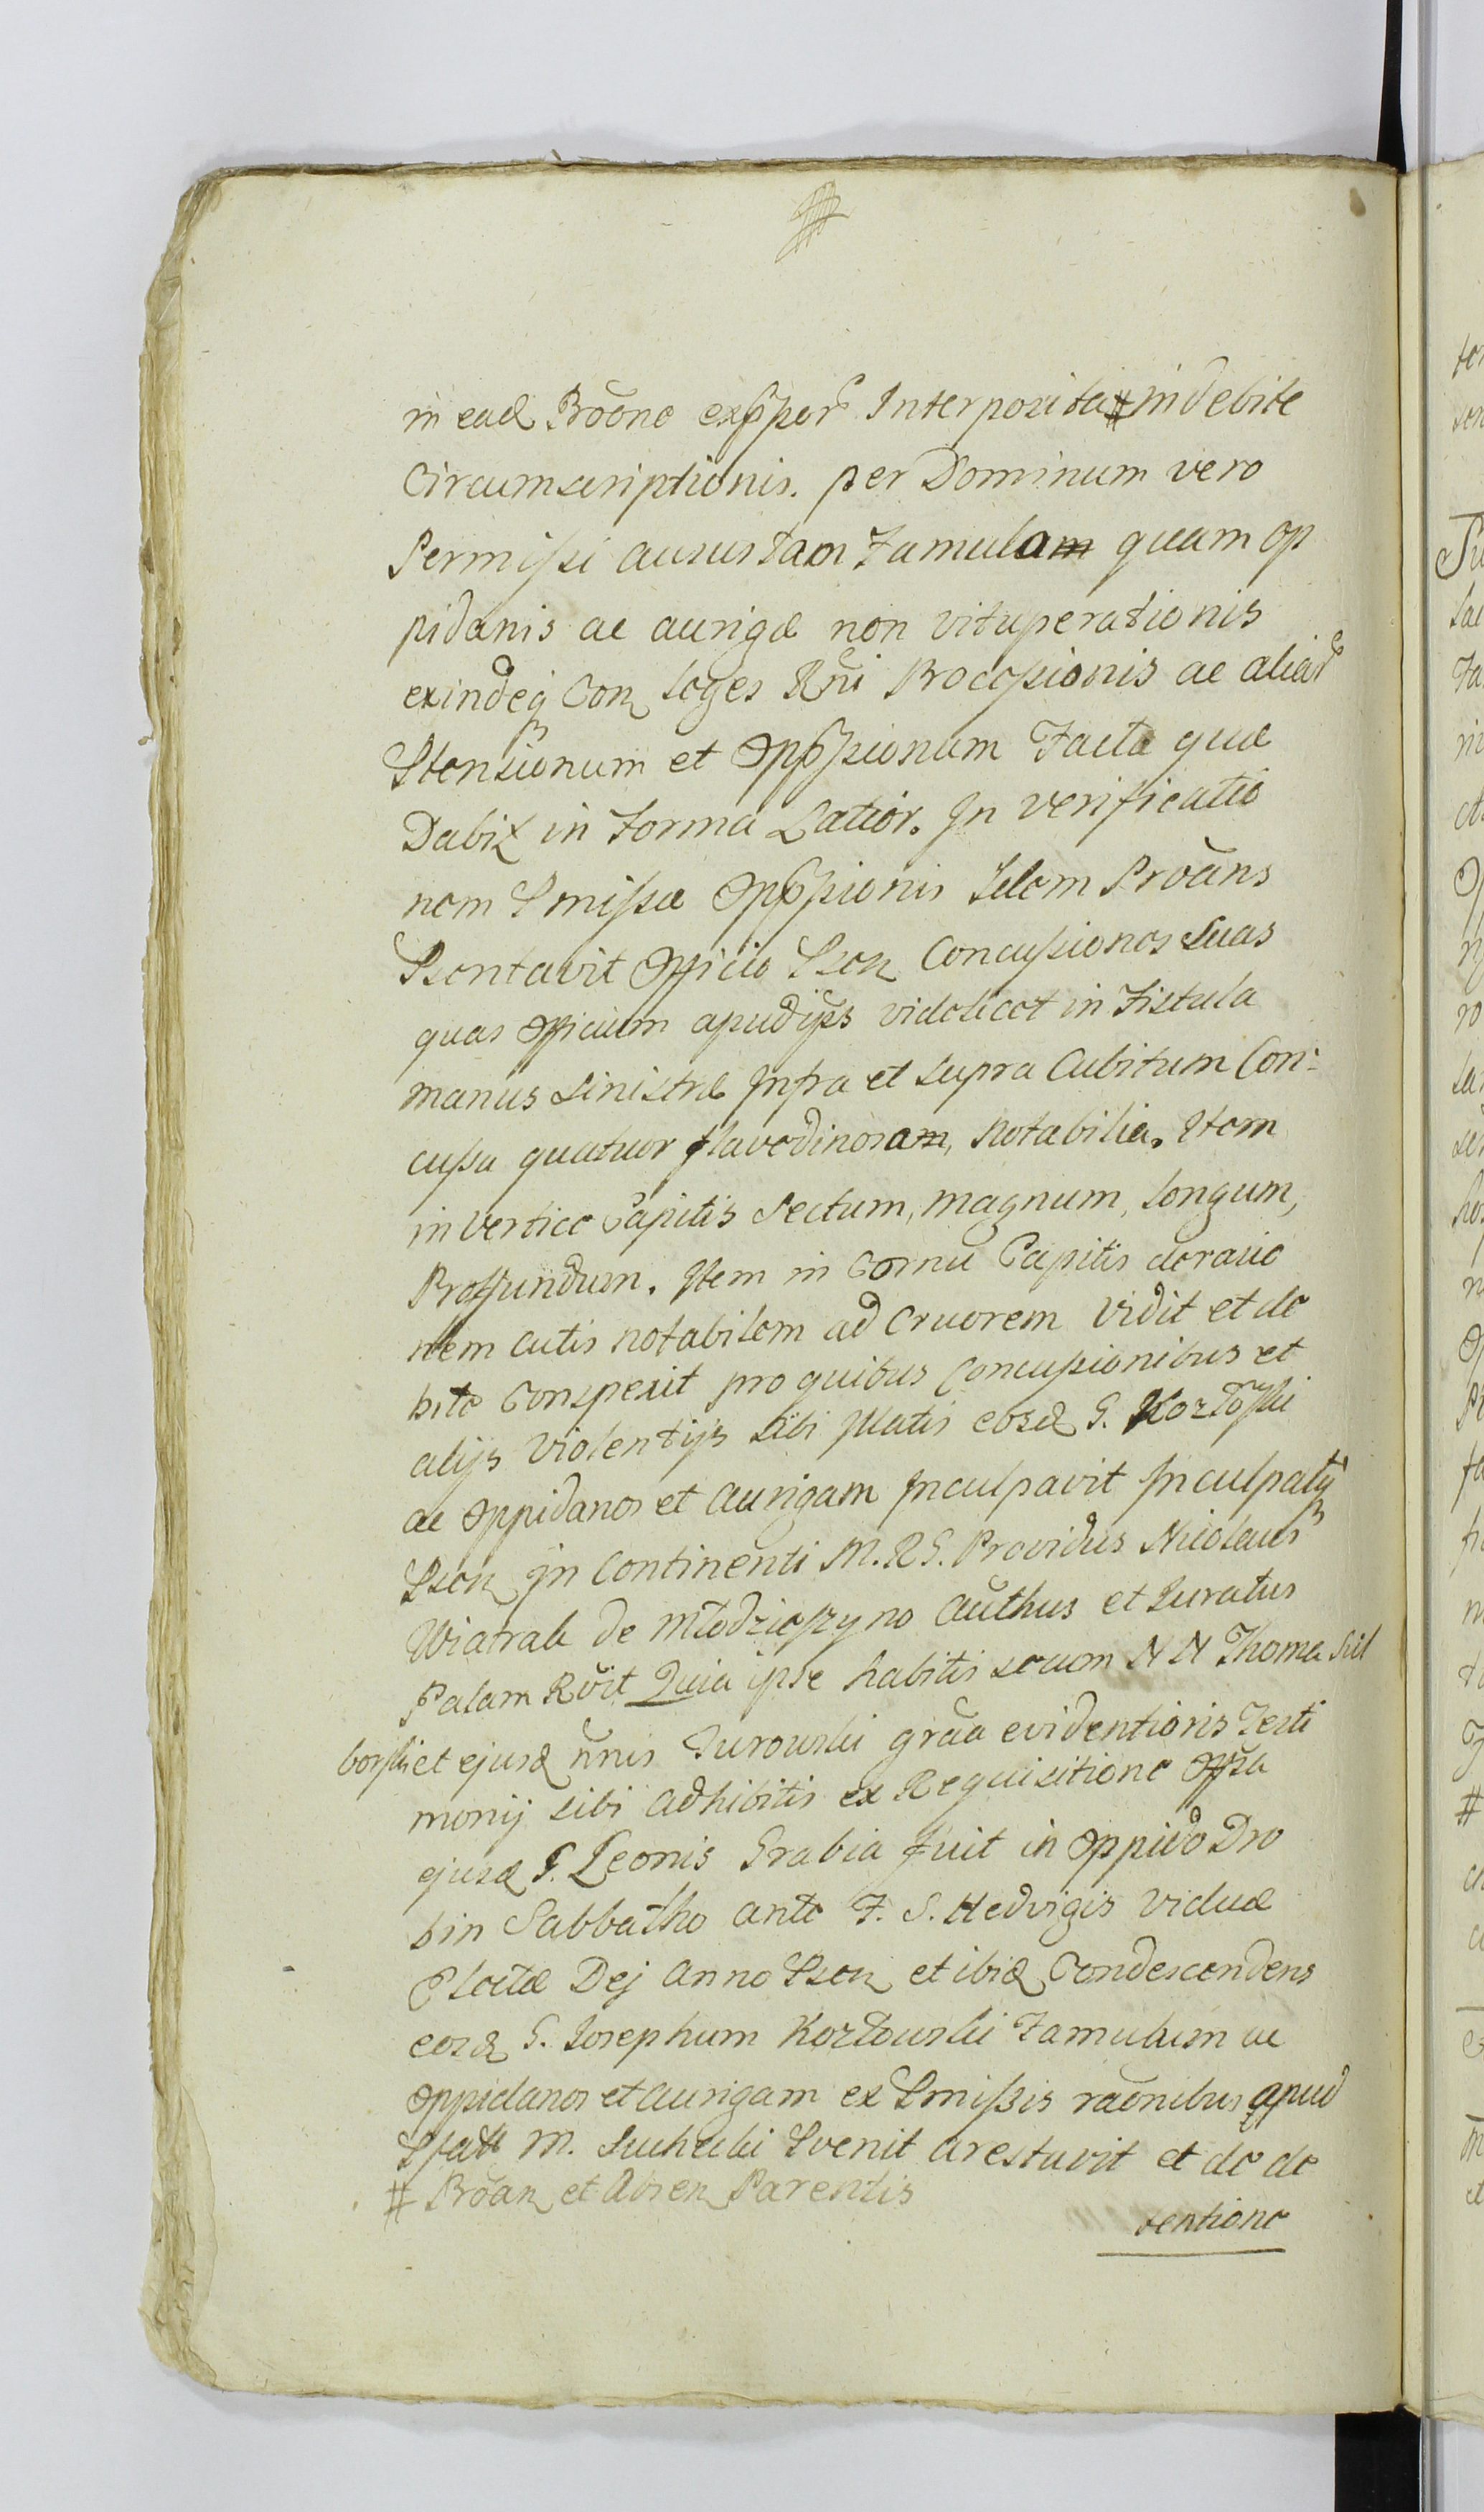 in ead Prōōne exppr Interposita # indebite
Circumscriptionis. per Dominum vero
Permissi ausus tam Famulam quam op
pidanis ac aurigæ non vituperationis
exindeq Con leges Rñi Processionis ac aliar
Ptensionum et Oppssionum Facta quæ
Dabix in Forma Latior. In verificatio
nem Pmissæ Oppssionis Idem Proāns
Psentavit Officio Psen Concussiones suas
quas Officium apud ips videlicet in Fistula
manus sinistræ Infra et supra Cubitum Con:
cussa quatuor flavedinosam, notabilia. Item
in vertice Capitis sectum, magnum, longum,
Profundum. Item in Cornu Capitis derasio
nem cutis notabilem ad Cruorem vidit et de
bite Conspexit pro quibus Concussionibus et
alijs violentijs sibi illatis eosd G. Kozłoski
ac Oppidanos et Aurigam Inculpavit Inculpatq
Psen In Continenti M. R G. Providus Nicolaus
Wiatrak de Młodzieszyno Authus et Juratus
Palam Rvit Quia ipse habitis secum N N Thoma Sul
borski et ejusd nñis Turowski grāa evidentioris Testi
monij sibi adhibitis ex Requisitione Offsa
ejusd G. Leonis Grabia fuit in Oppido Dro
bin Sabbatho ante F. S. Hedvigis Viduæ
Electæ Dej Anno Psen et ibid Condescendens
eosd G. Josephum Kozłowski Famulum ac
Oppidanos et Aurigam ex Pmissis raōnibus apud
M. Suchecki Pvenit arestavit et de de
# Proan et Absen Parentis
tentione